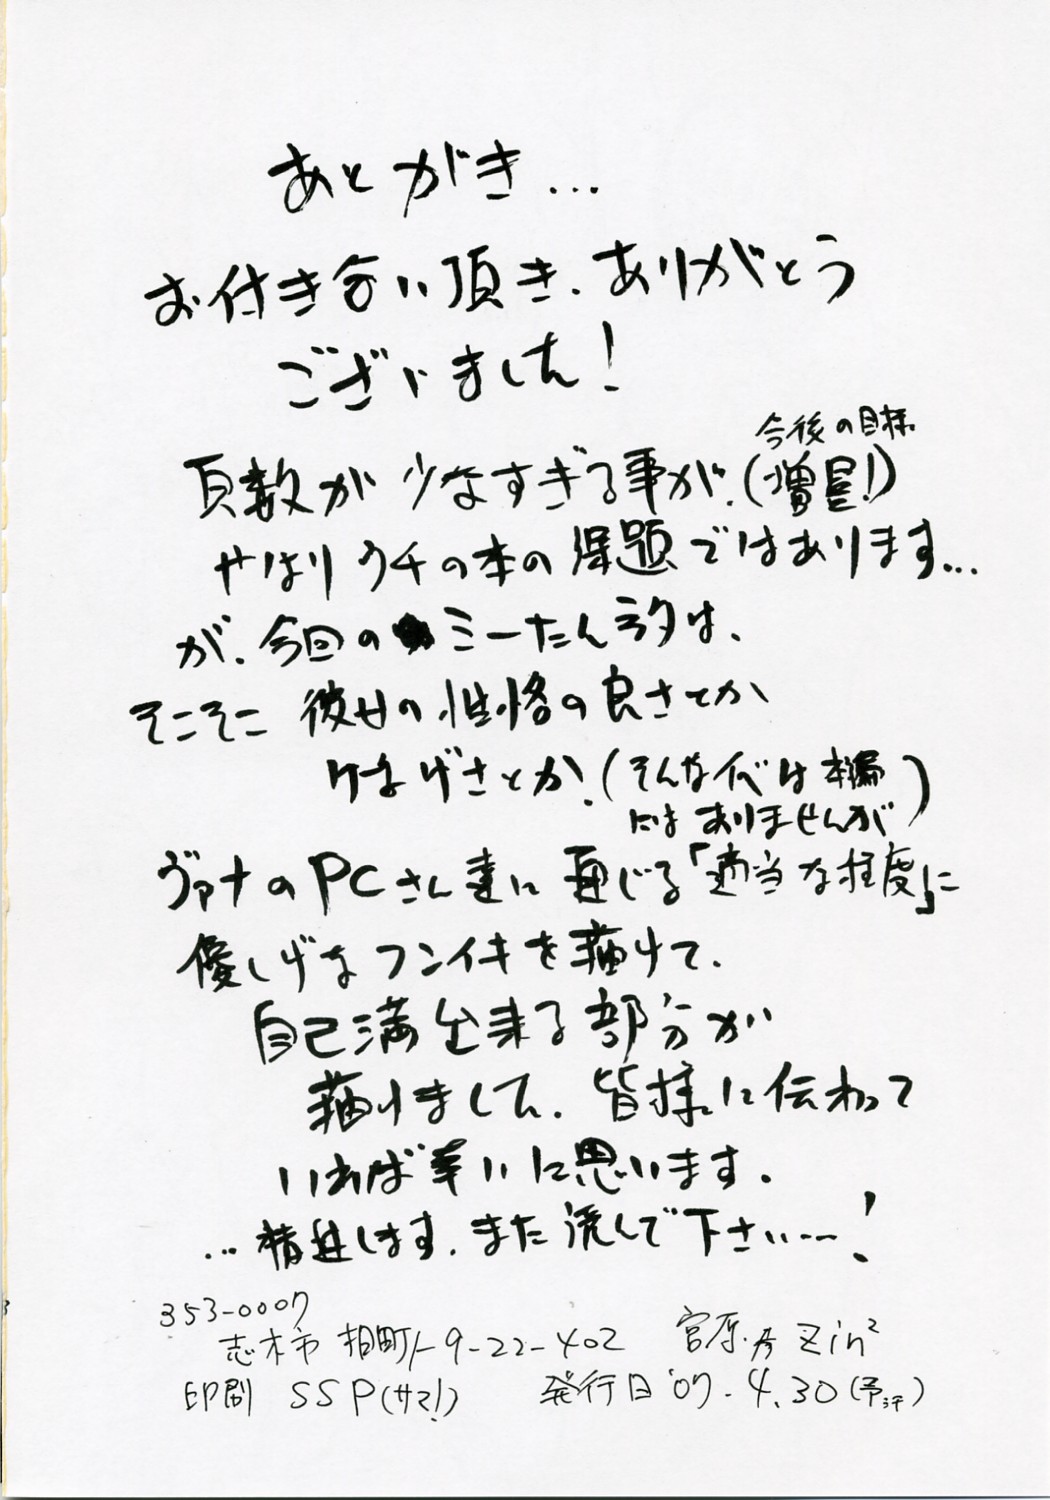 あとがき…
お付き合い頂き、ありがとう
ございました!
今後の目標
頁数が少なすぎる事が、(増量!)
やはりウチの本の課題ではあります…
が、今回のミーたんネタは、
そこそこ彼女の性格の良さとか
けなげさとか、(そんなイベは本編
にはありませんが)
ヴァナのPCさん達に通じる「適当な程度」に
優しげなフンイキを描けて、
自己満出来る部分が
描けました、皆様に伝わって
いれば幸いに思います。
…精進します、また読んで下さい…!
353-0007
志木市 柏町1-9-22-402 宮原 Zin²
印刷 SSP(サマ!) 発行日'07.4.30(予定)